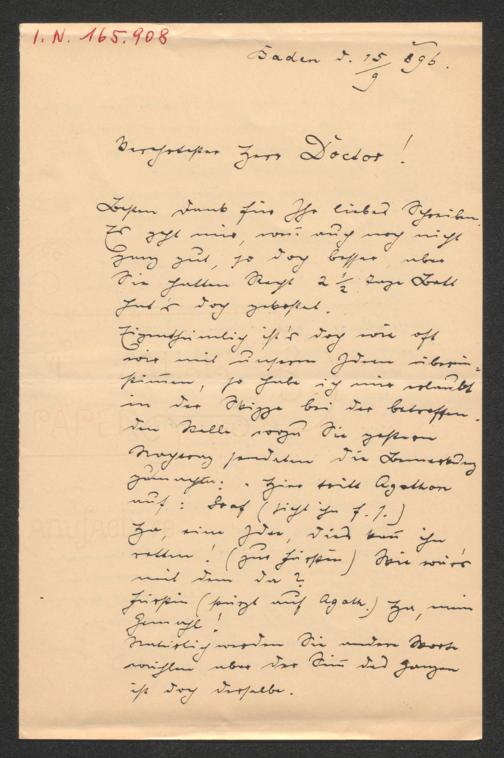 I. N. 165.908
Baden d. 15/9 896.
Verehrtester Herr Doctor!
Besten Dank für Ihr liebes Schreiben.
Es geht mir, wenn auch noch nicht
ganz gut, so doch besser, aber
Sie hatten Recht 2 1/2 Tage Bett
hat's doch gekostet.
Eigenthümlich ist's doch wie oft
wir mit unseren Ideen überein-
stimmen, so habe ich mir erlaubt
in der Skizze bei der betreffen-
den Stelle wozu Sie gestern
Nachtrag sendeten die Bemerkung
zu machen: Hier tritt Agathon
auf: Graf (sieht ihn f. J.)
Ha, eine Idee, dies kann ihn
retten! (zur Fürstin) Wie wär's
mit dem da?
Fürstin (stürzt auf Agath.) Ha, mein
Gemahl!
Natürlich werden Sie andere Worte
wählen aber der Sinn des ganzen
ist doch derselbe.